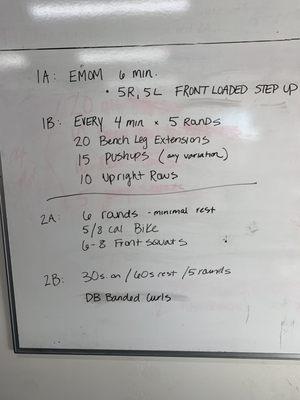 1A: EMOM 6 min.
• 5R, 5L FRONT LOADED STEP UP
1B: EVERY 4 min × 5 Rounds
20 Bench Leg Extensions
15 pushups (any variation)
10 Upright Rows
2A: 6 rounds - minimal rest
5/8 cal Bike
6-8 Front Squats
2B: 30s on / 60s rest / 5 rounds
DB Banded Curls